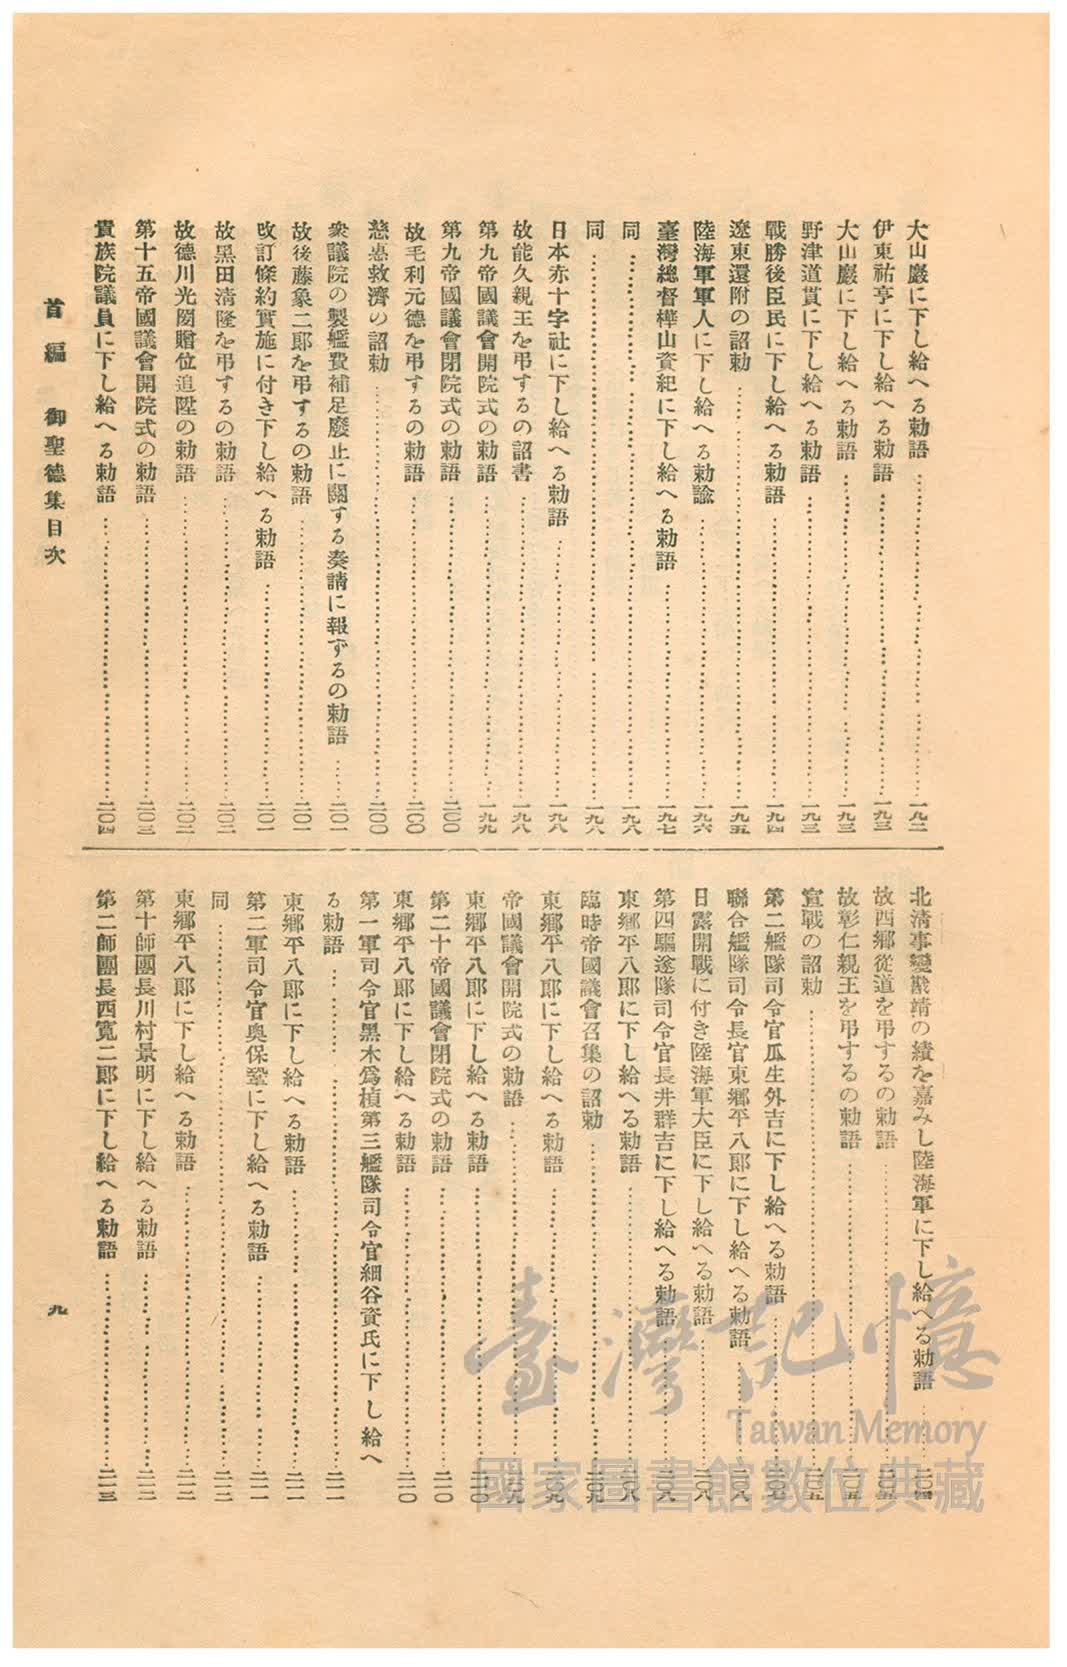 大山巖に下し給へる勅語……一九二
伊東祐亨に下し給へる勅語……一九三
大山巖に下し給へる勅語……一九三
野津道貫に下し給へる勅語……一九三
戰勝後臣民に下し給へる勅語……一九四
遼東還附の詔勅……一九五
陸海軍軍人に下し給へる勅諭……一九六
臺灣總督樺山資紀に下し給へる勅語……一九七
同……一九八
同……一九八
日本赤十字社に下し給へる勅語……一九八
故能久親王を弔するの詔書……一九八
第九帝國議會開院式の勅語……一九九
第九帝國議會閉院式の勅語……二〇〇
故毛利元德を弔するの勅語……二〇〇
慈惠救濟の詔勅……二〇〇
衆議院の製艦費補足廢止に關する奏請に報ずるの勅語……二〇一
故後藤象二郎を弔するの勅語……二〇一
改訂條約實施に付き下し給へる勅語……二〇一
故黑田淸隆を弔するの勅語……二〇二
故德川光圀贈位追陞の勅語……二〇二
第十五帝國議會開院式の勅語……二〇三
貴族院議員に下し給へる勅語……二〇四
北淸事變戡靖の績を嘉みし陸海軍に下し給へる勅語……二〇四
故西鄕從道を弔するの勅語……二〇五
故彰仁親王を弔するの勅語……二〇五
宣戰の詔勅……二〇五
第二艦隊司令官瓜生外吉に下し給へる勅語……二〇七
聯合艦隊司令長官東鄕平八郎に下し給へる勅語……二〇八
日露開戰に付き陸海軍大臣に下し給へる勅語……二〇八
第四驅逐隊司令官長井群吉に下し給へる勅語……二〇八
東鄕平八郎に下し給へる勅語……二〇八
臨時帝國議會召集の詔勅……二〇九
東鄕平八郎に下し給へる勅語……二〇九
帝國議會開院式の勅語……二〇九
東鄕平八郎に下し給へる勅語……二一〇
第二十帝國議會閉院式の勅語……二一〇
東鄕平八郎に下し給へる勅語……二一〇
第一軍司令官黑木爲楨第三艦隊司令官細谷資氏に下し給へ
る勅語……二一一
東鄕平八郎に下し給へる勅語……二一一
第二軍司令官奧保鞏に下し給へる勅語……二一一
同……二一二
東鄕平八郎に下し給へる勅語……二一二
第十師團長川村景明に下し給へる勅語……二一二
第二師團長西寬二郎に下し給へる勅語……二一三
首編 御聖德集目次
九
臺灣記憶
Taiwan Memory
國家圖書館數位典藏